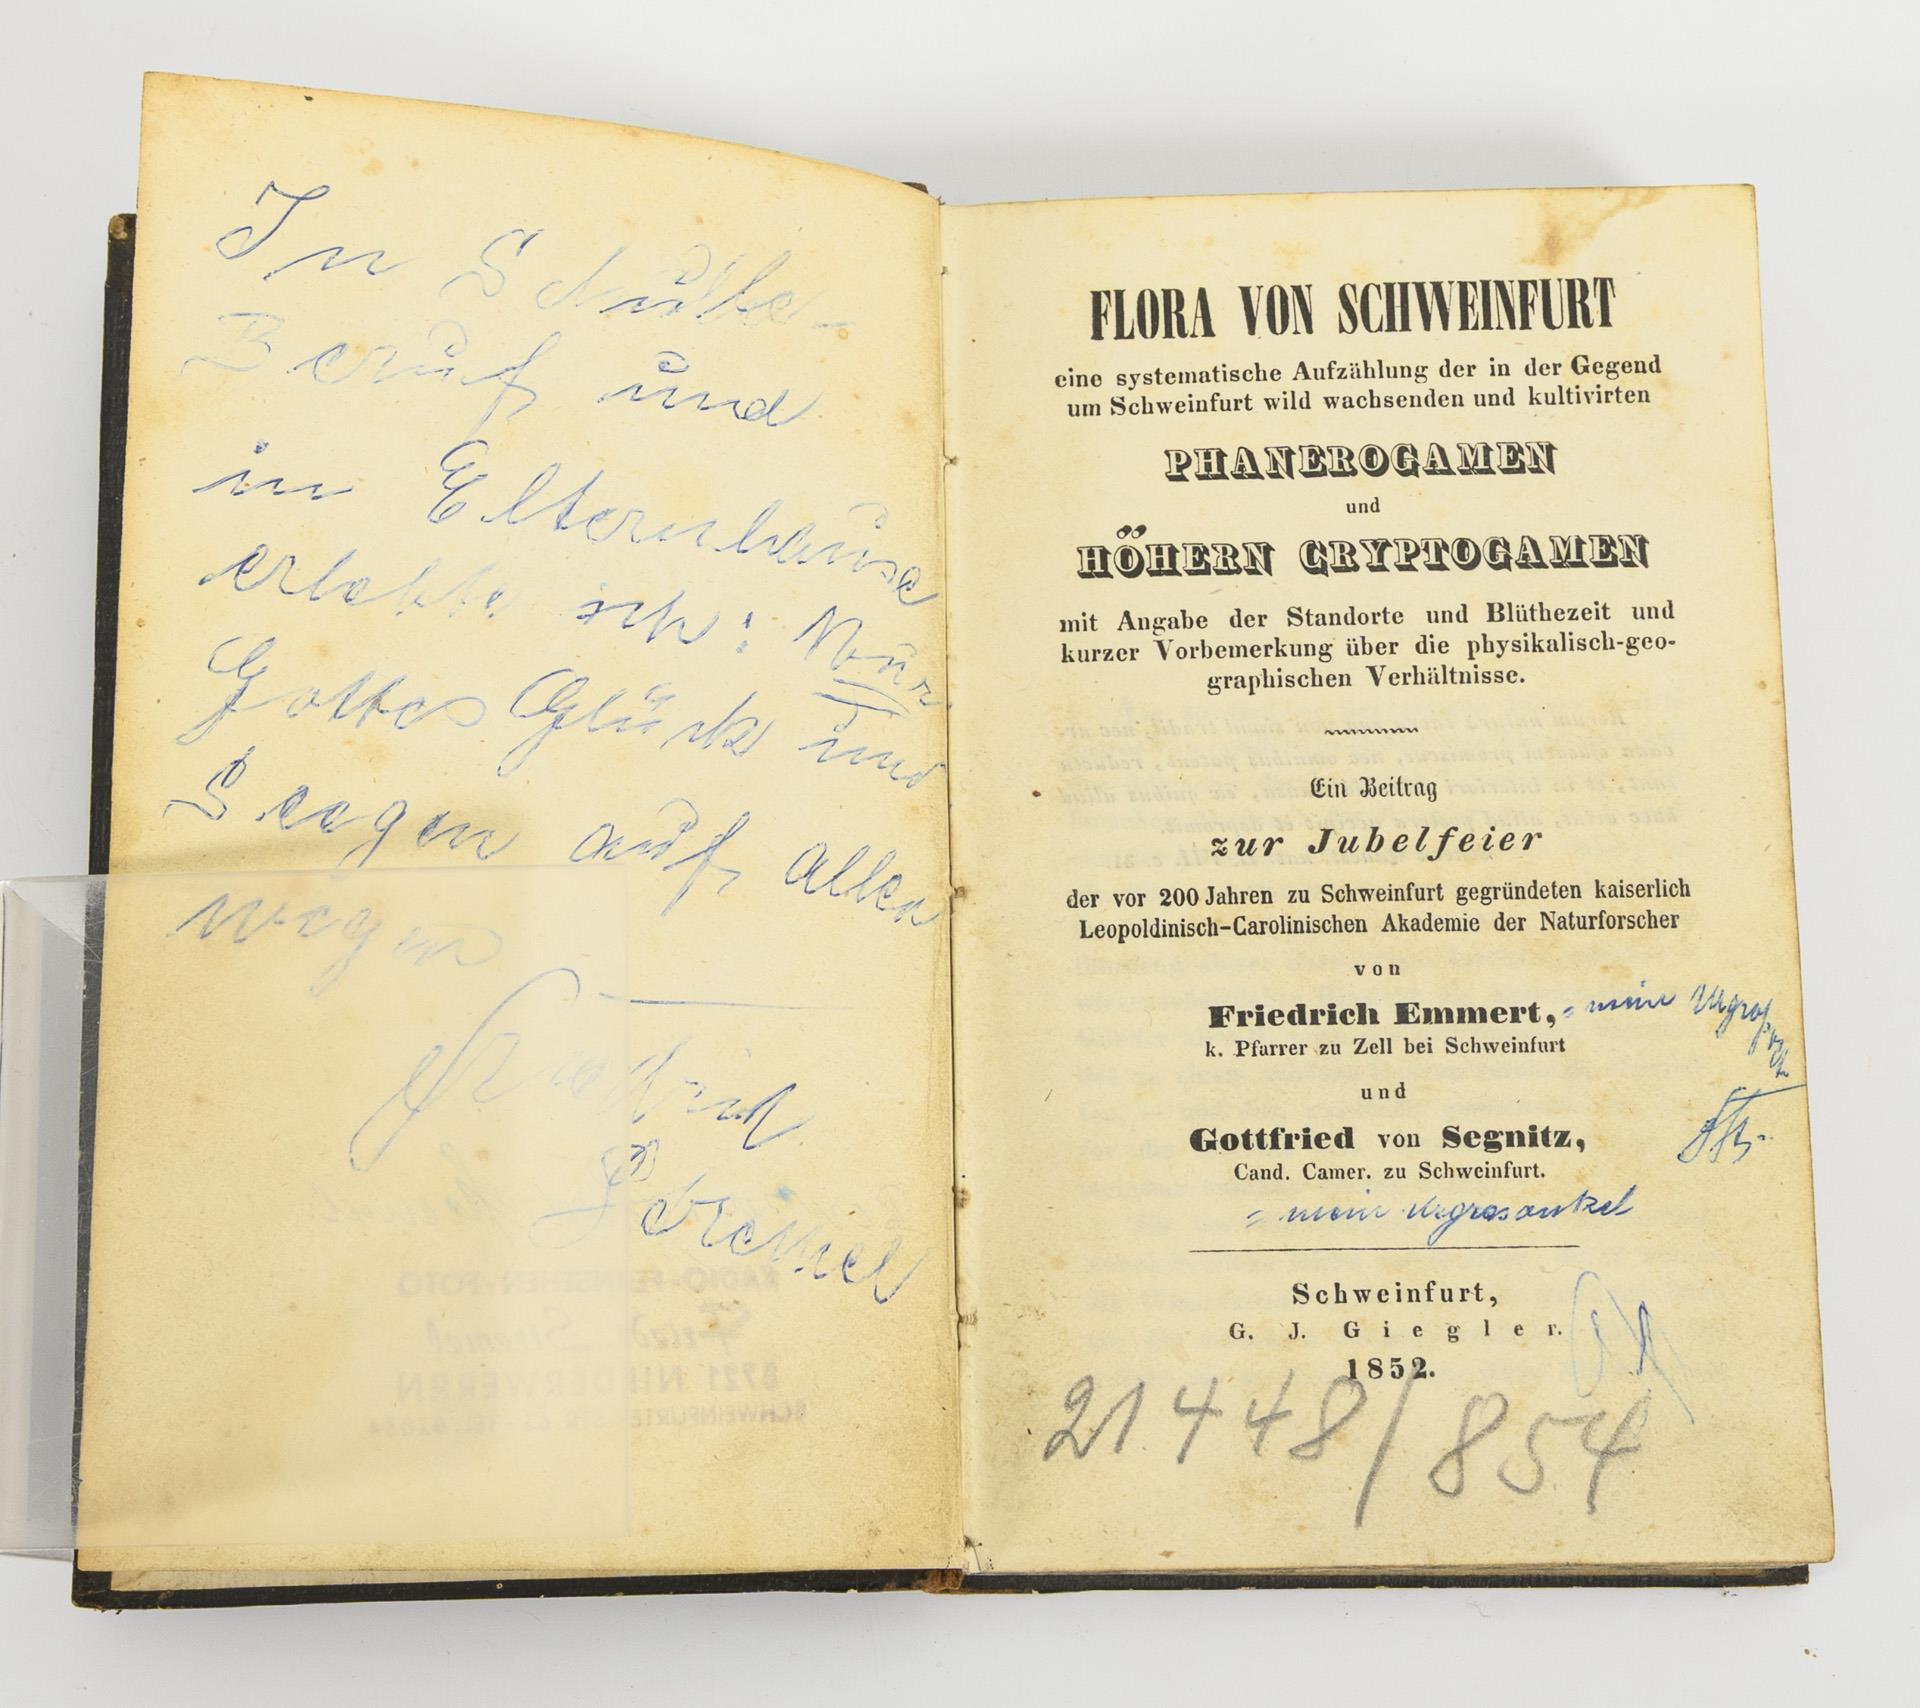 In Schule
Beruf und
in Elternhause
erlebte ich: Nur
Gottes Glück und
Seegen auf allen
wegen
FLORA VON SCHWEINFURT
eine systematische Aufzählung der in der Gegend
um Schweinfurt wild wachsenden und kultivirten
PHANEROGAMEN
und
HÖHERN CRYPTOGAMEN
mit Angabe der Standorte und Blüthezeit und
kurzer Vorbemerkung über die physikalisch-geo-
graphischen Verhältnisse.
Ein Beitrag
zur Jubelfeier
der vor 200 Jahren zu Schweinfurt gegründeten kaiserlich
Leopoldinisch-Carolinischen Akademie der Naturforscher
von
Friedrich Emmert, = mein
k. Pfarrer zu Zell bei Schweinfurt
und
Gottfried von Segnitz,
Cand. Camer. zu Schweinfurt.
= mein Urgrosonkel
Schweinfurt,
G. J. Giegler.
1852.
21448/854